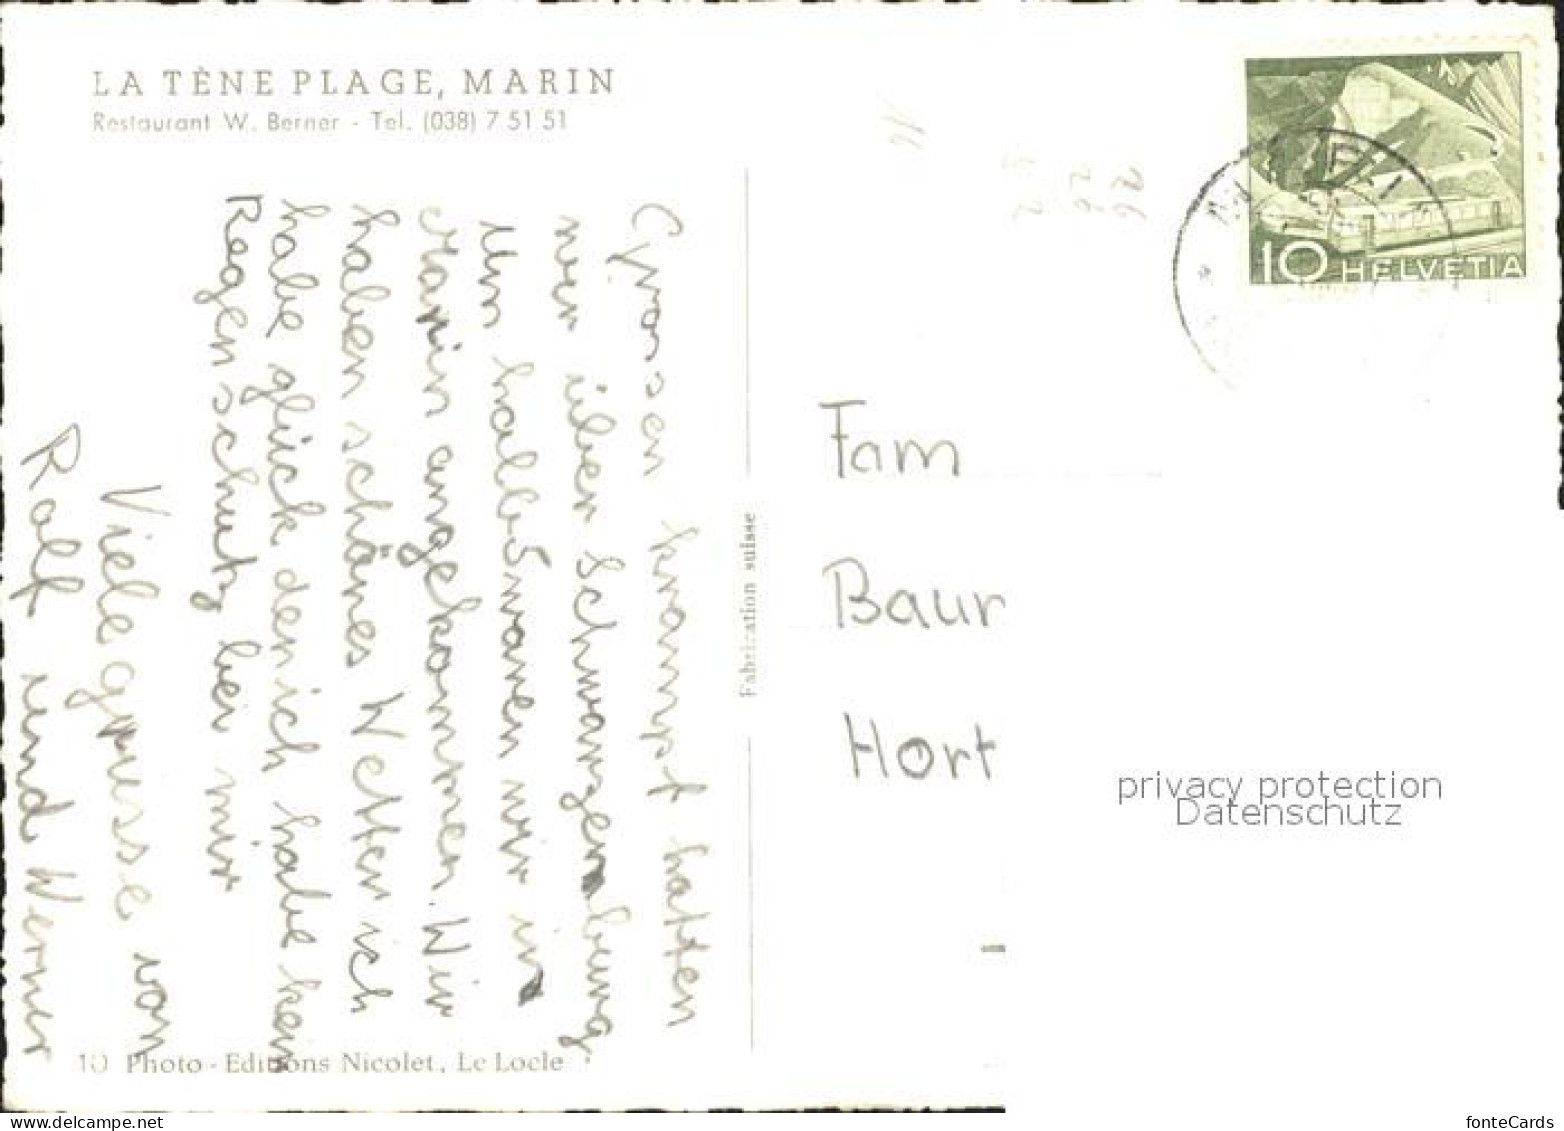 LA TÈNE PLAGE, MARIN
Restaurant W. Berner - Tel. (038) 7 51 51
Grossen krampf hatten
wir über Schwarzenabung
Um halb 5 waren wir in
Marin angekommen. Wir
haben schönes Wetter ich
habe glück den ich habe kein
Regenschutz bei mir
Viele grüsse von
Ralf und Werner
10 Photo-Editions Nicolet, Le Locle
Fabrication suisse
10 HELVETIA
Fam
Baur
Hort
privacy protection
Datenschutz
www.delcampe.net
fonteCards